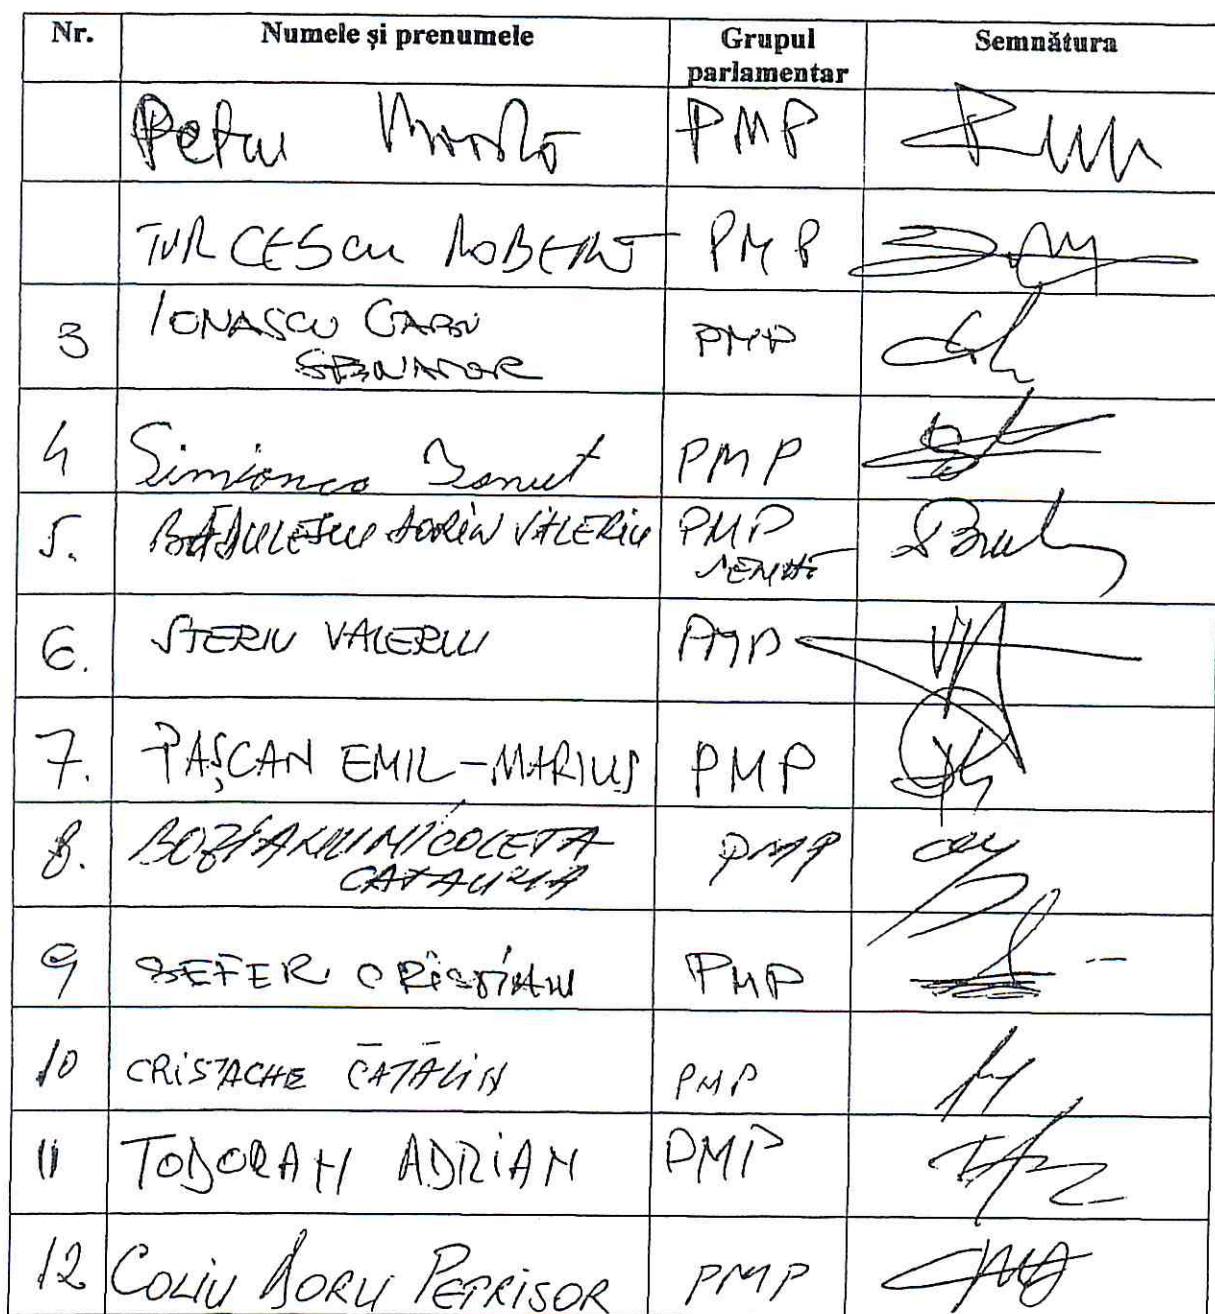 Nr. Numele și prenumele Grupul parlamentar Semnătura
Petru Movilă PMP
TURCESCU ROBERT PMP
3 IONASCU GABI PMP
SENATOR
4 Simionca Ionut PMP
5. BĂDULESCU DORIN VALERIU PMP
SENAT
6. STERIU VALERIU PMP
7. PAȘCAN EMIL-MARIUS PMP
8. BOZIANU NICOLETA PMP
CATALINA
9 SEFER CRISTIAN PMP
10 CRISTACHE CĂTĂLIN PMP
11 TODORAN ADRIAN PMP
12 COLIU DORU PETRISOR PMP